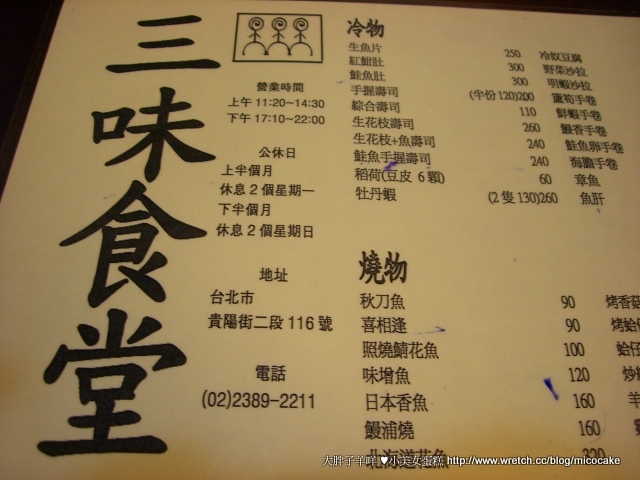 三味食堂
營業時間
上午 11:20~14:30
下午 17:10~22:00
公休日
上半個月
休息 2 個星期一
下半個月
休息 2 個星期日
地址
台北市
貴陽街二段 116 號
電話
(02)2389-2211
冷物
生魚片 250 冷奴豆腐
紅魽肚 300 野菜沙拉
鮭魚肚 300 明蝦沙拉
手握壽司 (半份 120)200 蘆筍手卷
綜合壽司 110 鮮蝦手卷
生花枝壽司 260 鰻香手卷
生花枝+魚壽司 240 鮭魚卵手卷
鮭魚手握壽司 240 海膽手卷
稻荷(豆皮 6 顆) 60 章魚
牡丹蝦 (2 隻 130)260 魚肝
燒物
秋刀魚 90 烤香菇
喜相逢 90 烤蛤
照燒鯖花魚 100 蛤仔
味增魚 120
日本香魚 160 羊
鰻浦燒 160
北海道花魚 320
大胖子羊咩 ♥小美女蛋糕 http://www.wretch.cc/blog/micocake